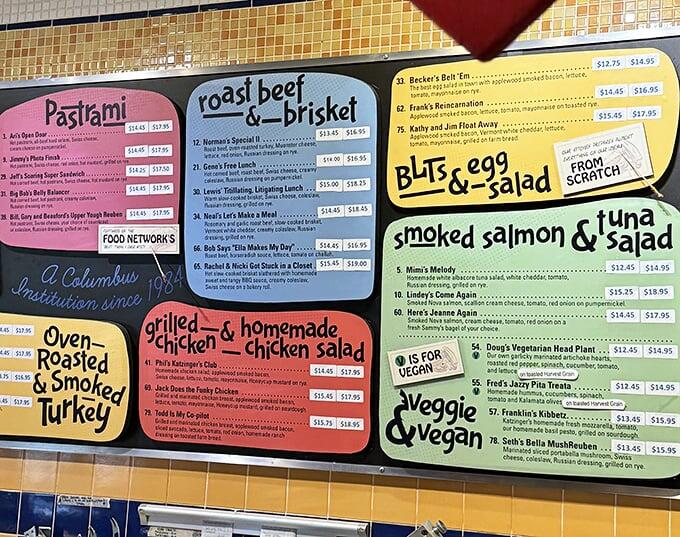 Pastrami
3. Ari's Open Door $14.45 $17.95
Hot pastrami, all beef hard salami, Swiss cheese,
9. Jimmy's Photo Finish $14.45 $17.95
Hot pastrami, Swiss cheese, red onion, hot mustard, grilled on rye.
29. Jeff's Soaring Super Sandwich $14.25 $17.50
Hot corned beef, hot pastrami, Swiss cheese, hot mustard on rye.
31. Big Bob's Belly Balancer $14.45 $17.95
Hot corned beef, hot pastrami,
39. Bill, Gary and Beauford's Upper Yough Reuben $14.45 $17.95
Hot pastrami, Swiss cheese, your choice of sauerkraut
or coleslaw, Russian dressing, grilled on rye.
FEATURED ON THE
FOOD NETWORK'S
BEST THING I EVER ATE!
A Columbus
Institution since 1984
roast beef
& brisket
12. Norman's Special II $13.45 $16.95
Roast beef, oven-roasted turkey, Muenster cheese,
lettuce, red onion, Russian dressing on rye.
21. Geno's Free Lunch $14.00 $16.95
Hot corned beef, roast beef, Swiss cheese, creamy
coleslaw, Russian dressing on pumpernickel.
30. Lewis' Titillating, Litigating Lunch $15.00 $18.25
Warm slow-cooked brisket, Swiss cheese, coleslaw,
Russian dressing, grilled on rye.
34. Neal's Let's Make a Meal $14.45 $18.45
Rosemary and garlic roast beef, slow-cooked brisket,
Vermont white cheddar, creamy coleslaw, Russian
dressing, grilled on rye.
66. Bob Says "Ella Makes My Day" $14.45 $16.95
Roast beef, kosher-style sauerkraut, lettuce, tomato or challah.
65. Rachel & Nicki Got Stuck in a Closet $15.45 $19.00
Hot slow cooked brisket slathered with homemade
sweet and tangy BBQ sauce, creamy coleslaw,
Swiss cheese on a bakery roll.
33. Becker's Belt 'Em $12.75 $14.95
The best egg salad in town with applewood smoked bacon, lettuce,
tomato, mayonnaise on rye.
62. Frank's Reincarnation $14.45 $16.95
Applewood smoked bacon, lettuce, tomato, mayonnaise on toasted rye.
75. Kathy and Jim Float Away $15.45 $17.95
Applewood smoked bacon, Vermont white cheddar, lettuce,
tomato, mayonnaise, grilled on farm bread.
BLTs & egg
salad
OUR KITCHEN PREPARES ALMOST
EVERYTHING ON OUR MENU
FROM
SCRATCH
smoked salmon & tuna
salad
5. Mimi's Melody $12.45 $14.95
Homemade white albacore tuna salad, white cheddar, tomato,
Russian dressing, grilled on rye.
10. Lindey's Come Again $15.25 $18.95
Smoked Nova salmon, scallion cream cheese, tomato, red onion on pumpernickel.
60. Here's Jeanne Again $14.45 $17.95
Smoked Nova salmon, cream cheese, tomato, red onion on a
fresh Sammy's bagel of your choice.
V IS FOR
VEGAN
Veggie
& vegan
54. Doug's Vegetarian Head Plant $12.45 $14.95
V Our own garlicky marinated artichoke hearts,
roasted red pepper, spinach, cucumber, tomato,
and lettuce on toasted Harvest Grain
55. Fred's Jazzy Pita Treata $12.45 $14.95
V Homemade hummus, cucumbers, spinach,
tomato and Kalamata olives on toasted Harvest Grain
57. Franklin's Kibbetz $13.45 $15.95
Katzinger's homemade fresh mozzarella, tomato,
our homemade basil pesto, grilled on sourdough.
78. Seth's Bella MushReuben $13.45 $15.95
Marinated sliced portabella mushroom, Swiss
cheese, coleslaw, Russian dressing, grilled on rye.
$17.95
$17.95
$16.95
$17.95
Oven-
Roasted
& Smoked
Turkey
grilled & homemade
chicken chicken salad
41. Phil's Katzinger's Club $14.45 $17.95
Homemade chicken salad, applewood smoked bacon,
Swiss cheese, lettuce, tomato, mayonnaise, Honeycup mustard on rye.
69. Jack Does the Funky Chicken $15.45 $17.95
Grilled and marinated chicken breast, applewood smoked bacon,
lettuce, tomato, mayonnaise, Honeycup mustard, grilled on sourdough.
79. Todd Is My Co-pilot $15.75 $18.95
Grilled and marinated chicken breast, applewood smoked bacon,
sliced avocado, lettuce, tomato, red onion, homemade ranch
dressing on toasted farm bread.